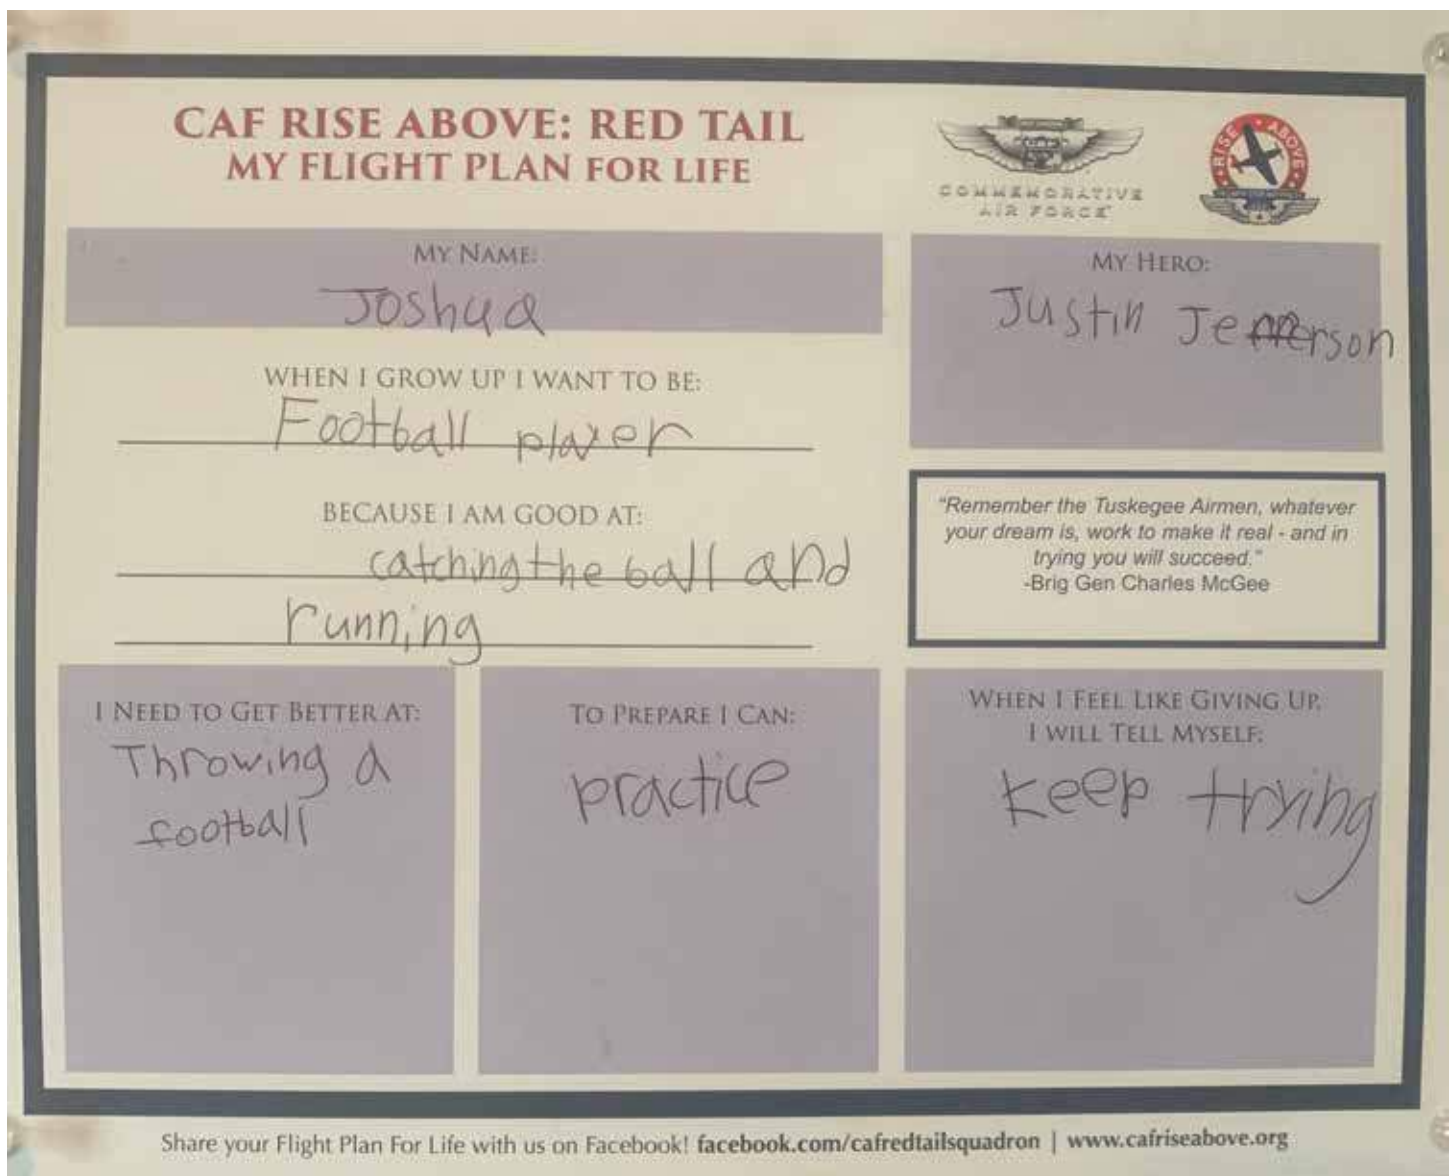 CAF RISE ABOVE: RED TAIL
MY FLIGHT PLAN FOR LIFE
COMMEMORATIVE
AIR FORCE
RISE ABOVE
MY NAME:
Joshua
WHEN I GROW UP I WANT TO BE:
Football player
BECAUSE I AM GOOD AT:
catching the ball and
running
MY HERO:
Justin Jefferson
"Remember the Tuskegee Airmen, whatever
your dream is, work to make it real - and in
trying you will succeed."
-Brig Gen Charles McGee
I NEED TO GET BETTER AT:
Throwing a
football
TO PREPARE I CAN:
practice
WHEN I FEEL LIKE GIVING UP,
I WILL TELL MYSELF:
keep trying
Share your Flight Plan For Life with us on Facebook! facebook.com/cafredtailsquadron | www.cafriseabove.org